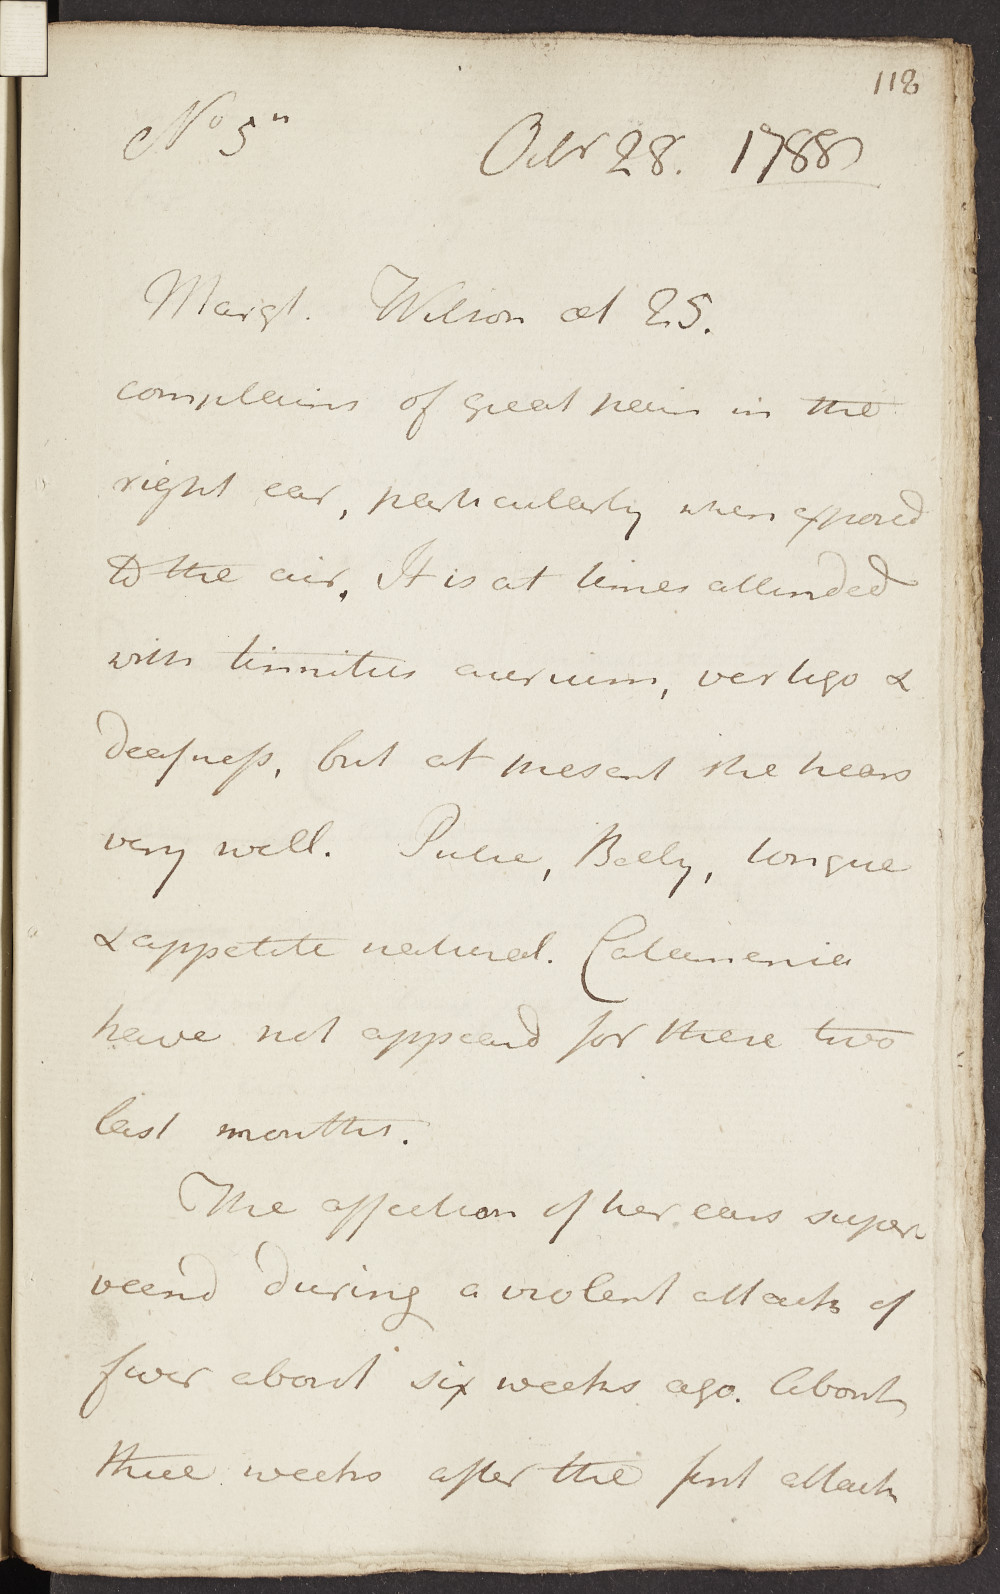 118
No 5" Octr 28. 1788
Margt. Wilson æt 25.
complains of great pain in the
right ear, particularly when exposed
to the air. It is at times attended
with tinnitus aurium, vertigo &
deafness, but at present she hears
very well. Pulse, Belly, tongue
& appetite natural. Catamenia
have not appeard for these two
last months.
The affection of her ears super
veend during a violent attack of
fever about six weeks ago. About
three weeks after the first attack